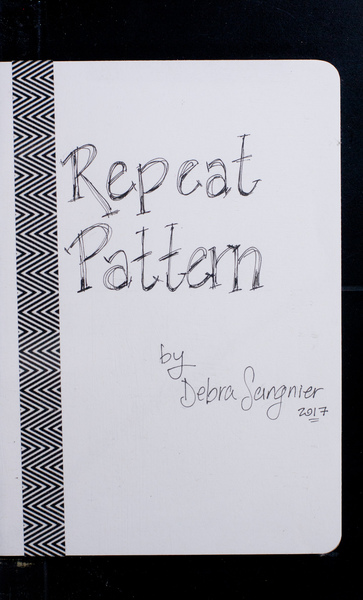 Repeat
Pattern
by
Debra Sangnier
2017